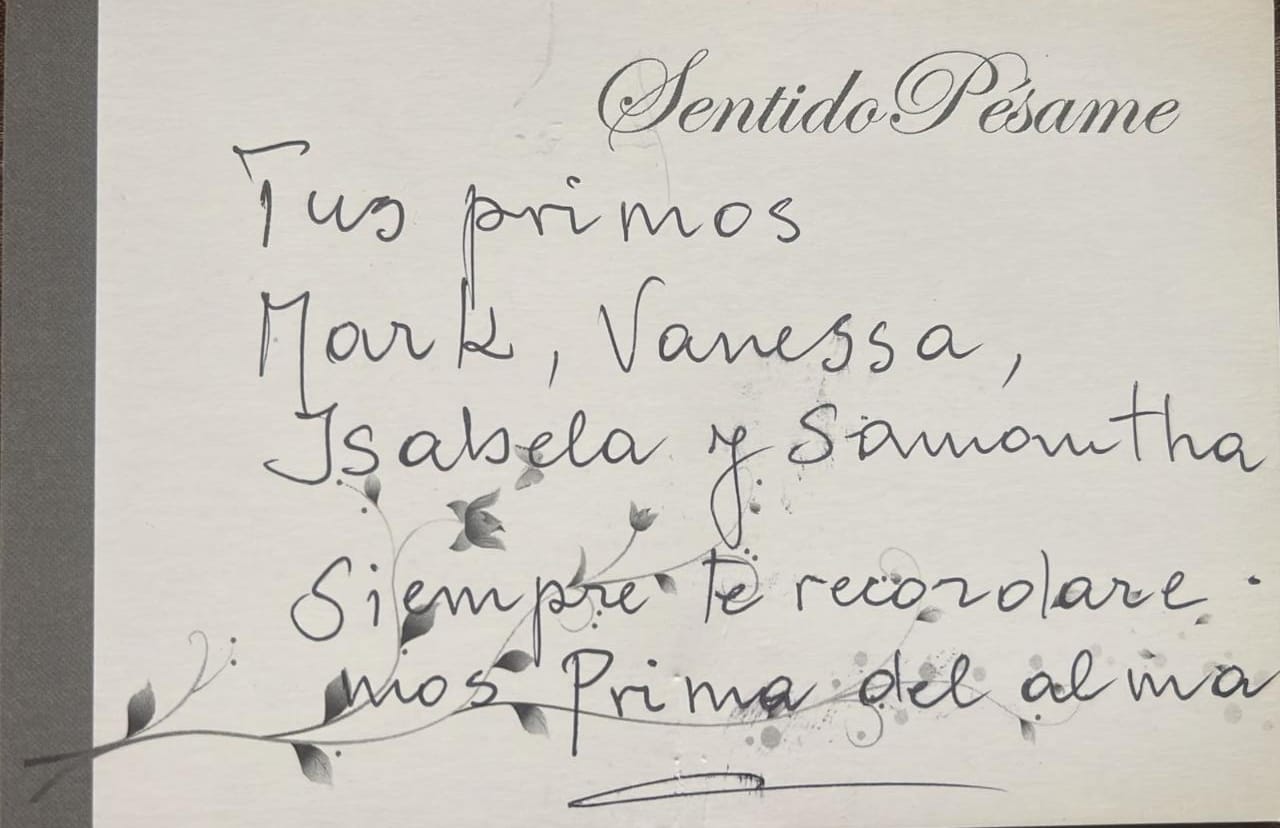 Sentido Pésame
Tus primos
Mark, Vanessa,
Isabela y Samantha
Siempre te recordare-
mos Prima del alma